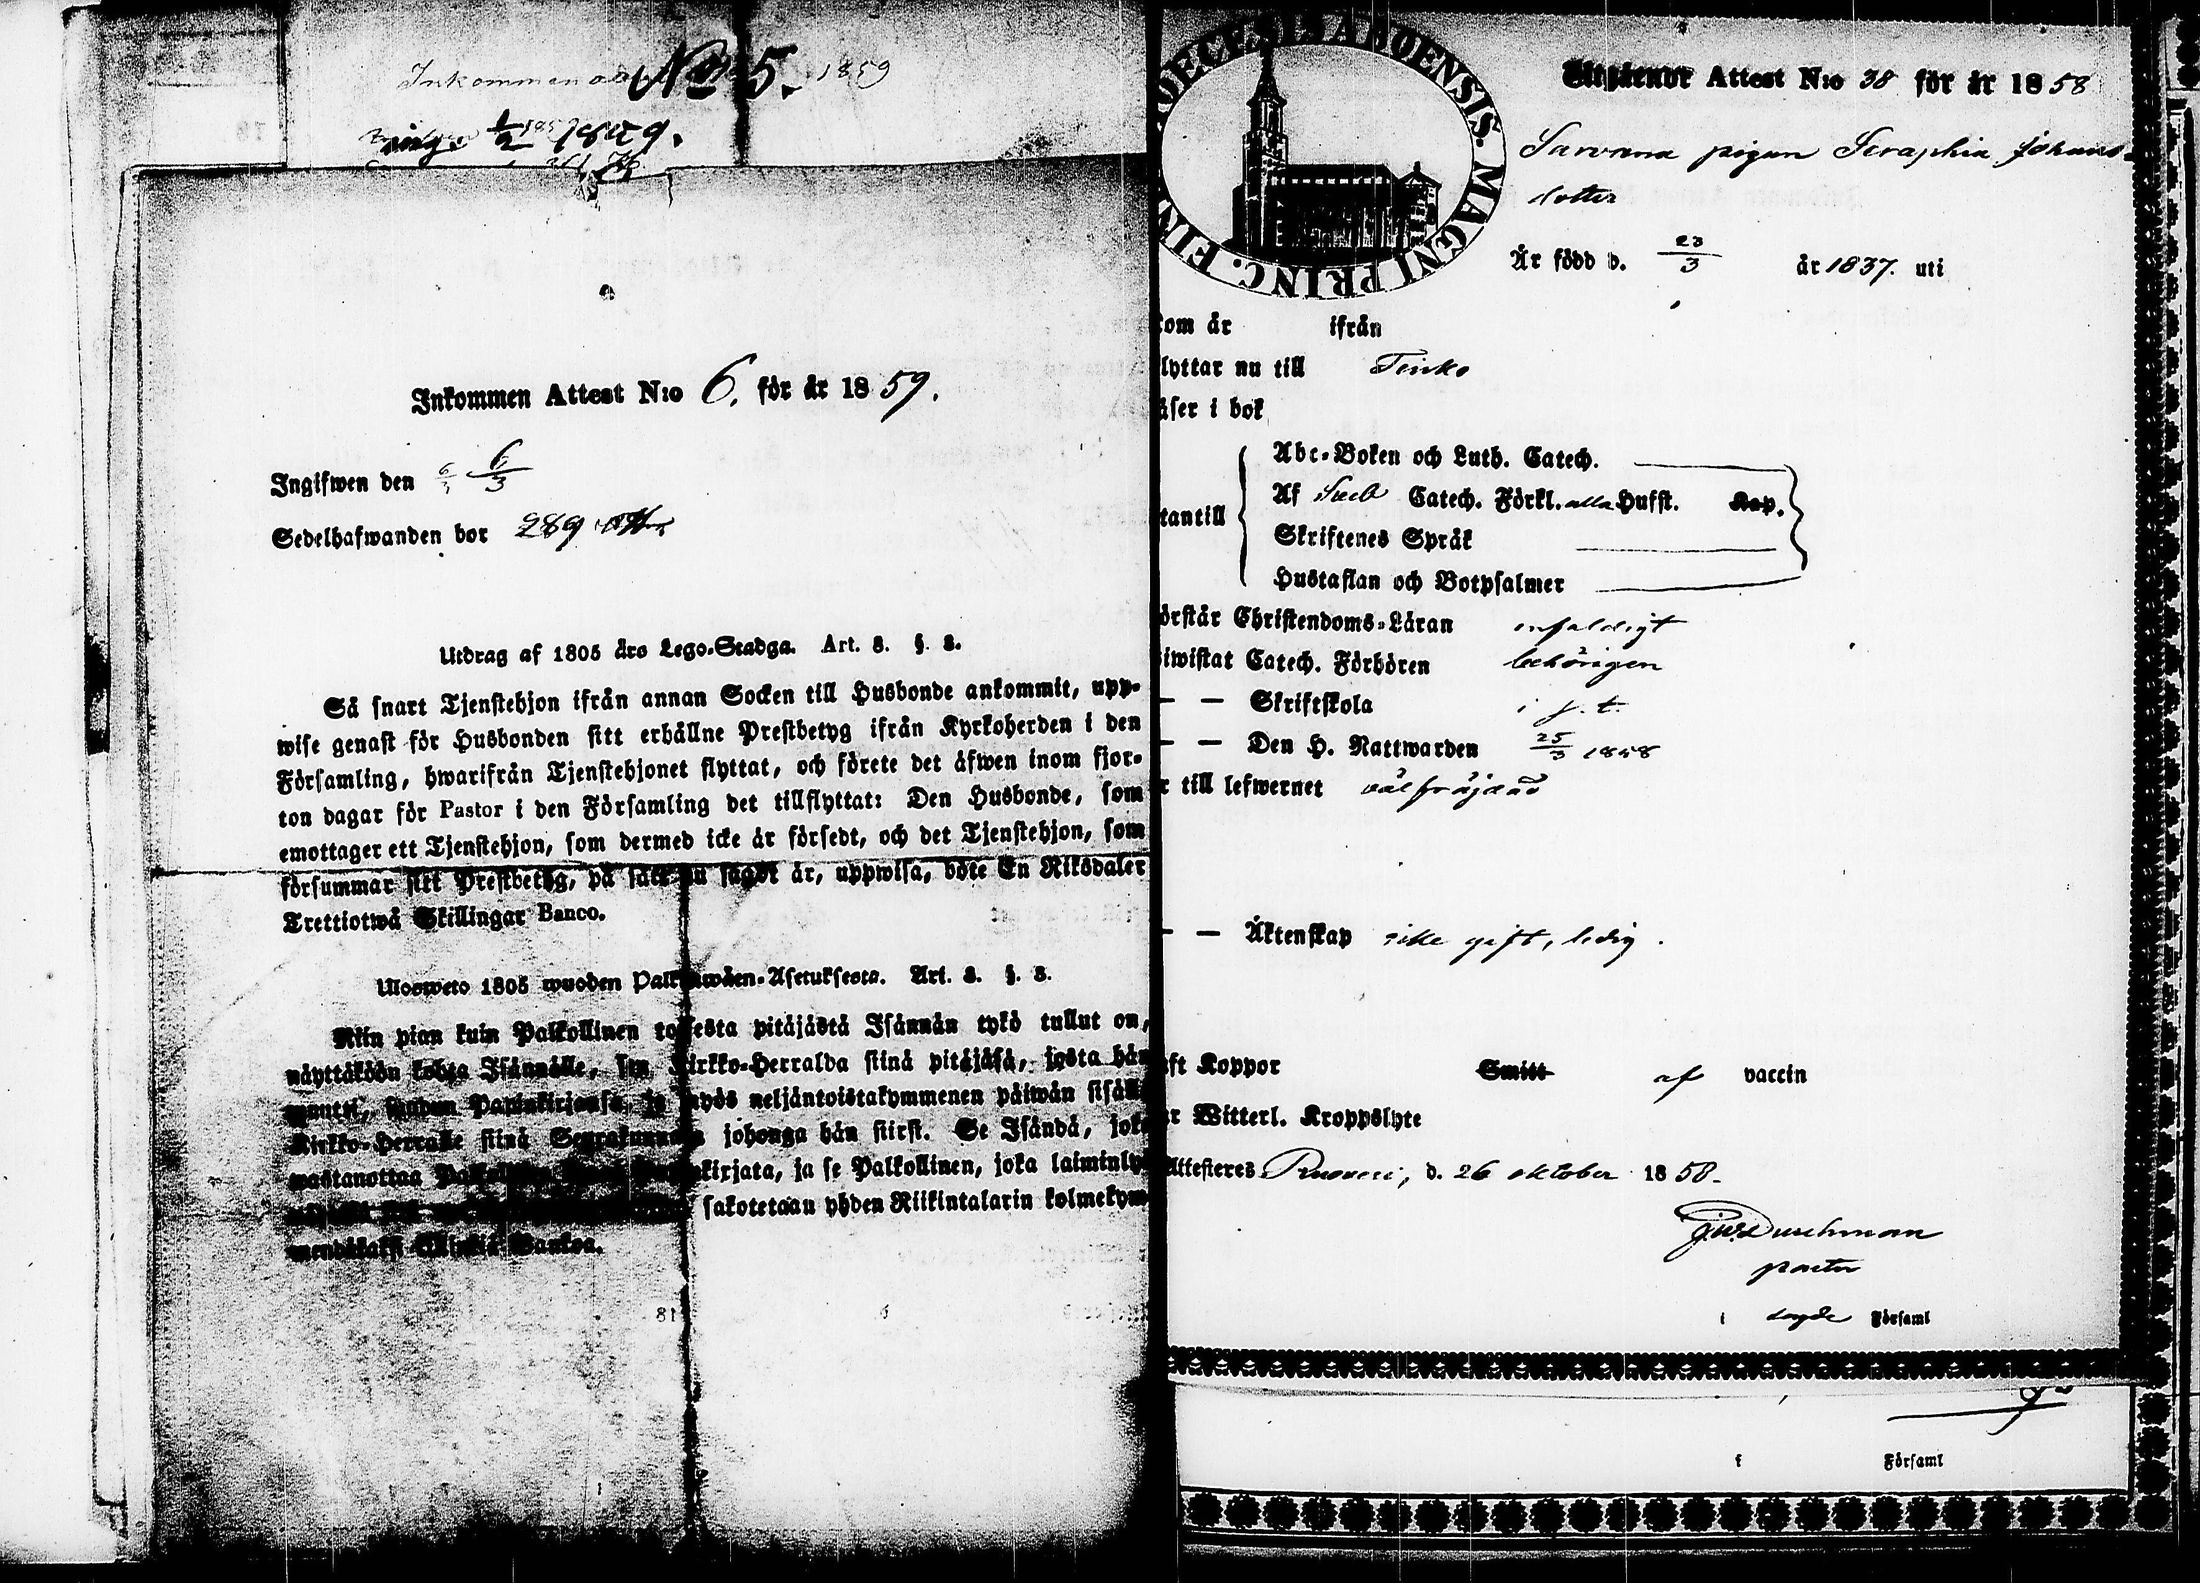 Inkommen No 5. 1859
Inkommen Attest N:o 6. för år 1859.
Ingifwen den 6/3
Sedelhafwanden bor 289
Utdrag af 1805 års Lego-Stadga. Art. 3. §. 3.
Så snart Tjenstehjon ifrån annan Socken till Husbonde ankommit, upp-
wise genast för Husbonden sitt erhållne Prestbetyg ifrån Kyrkoherden i den
Församling, hwarifrån Tjenstehjonet flyttat, och förete det äfwen inom fjor-
ton dagar för Pastor i den Församling det tillflyttat: Den Husbonde, som
emottager ett Tjenstehjon, som dermed icke är försedt, och det Tjenstehjon, som
försummar sitt Prestbetyg, på sätt nu sagdt är, uppwisa, böte En Riksdaler
Trettiotwå Skillingar Banco.
Ulosweto 1805 wuoden Palkkawäen-Asetuksesta. Art. 3. §. 3.
Niin pian kuin Palkollinen toisesta pitäjästä Isännän tykö tullut on,
näyttäköön kohta Isännälle, sen Kirkko-Herralda siinä pitäjäsä, josta hän
muutti, saadun Papinkirjansa, ja myös neljäntoistakymmenen päiwän sisällä
Kirkko-Herralle siinä Seurakunnasa johonga hän siirsi. Se Isändä, joka
wastanottaa Palkollisen kirjata, ja se Palkollinen, joka laiminly
sakotetaan yhden Riikintalarin kolmekym-
mendäkaksi Killinkiä Bankoa.
DIOECESIS ABOENSIS. MAGNI PRINC. FIN
Utgående Attest N:o 38 för år 1858
pigan Seraphia Johans-
dotter
Är född d. 23/3 år 1837. uti
kom år ifrån
flyttar nu till
läser i bok
utantill
Abc-Boken och Luth. Catech.
Af Sveb Catech. Förkl. alla Hufst. Kap.
Skriftenes Språk
Hustaflan och Botpsalmer
förstår Christendoms-Läran enfaldigt
biwistat Catech. Förhören behörigen
— — Skriftskola
— — Den H. Nattwarden 25/3 1858
är till lefwernet välfräjdad
— — Äktenskap icke gift, ledig.
haft Koppor Smitt af vaccin
har Witterl. Kroppslyte
Attesteres d. 26 oktober 1858.
pastor
i sagde Församl
f Församl